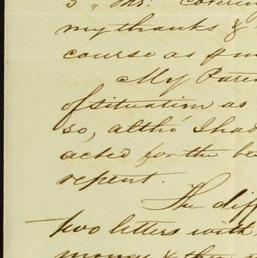 5 " Ms. Coven
my thanks &
course as
My Paren
of situation as
so, altho' I had
acted for the be
repent.
The diff
two letters with
money & the